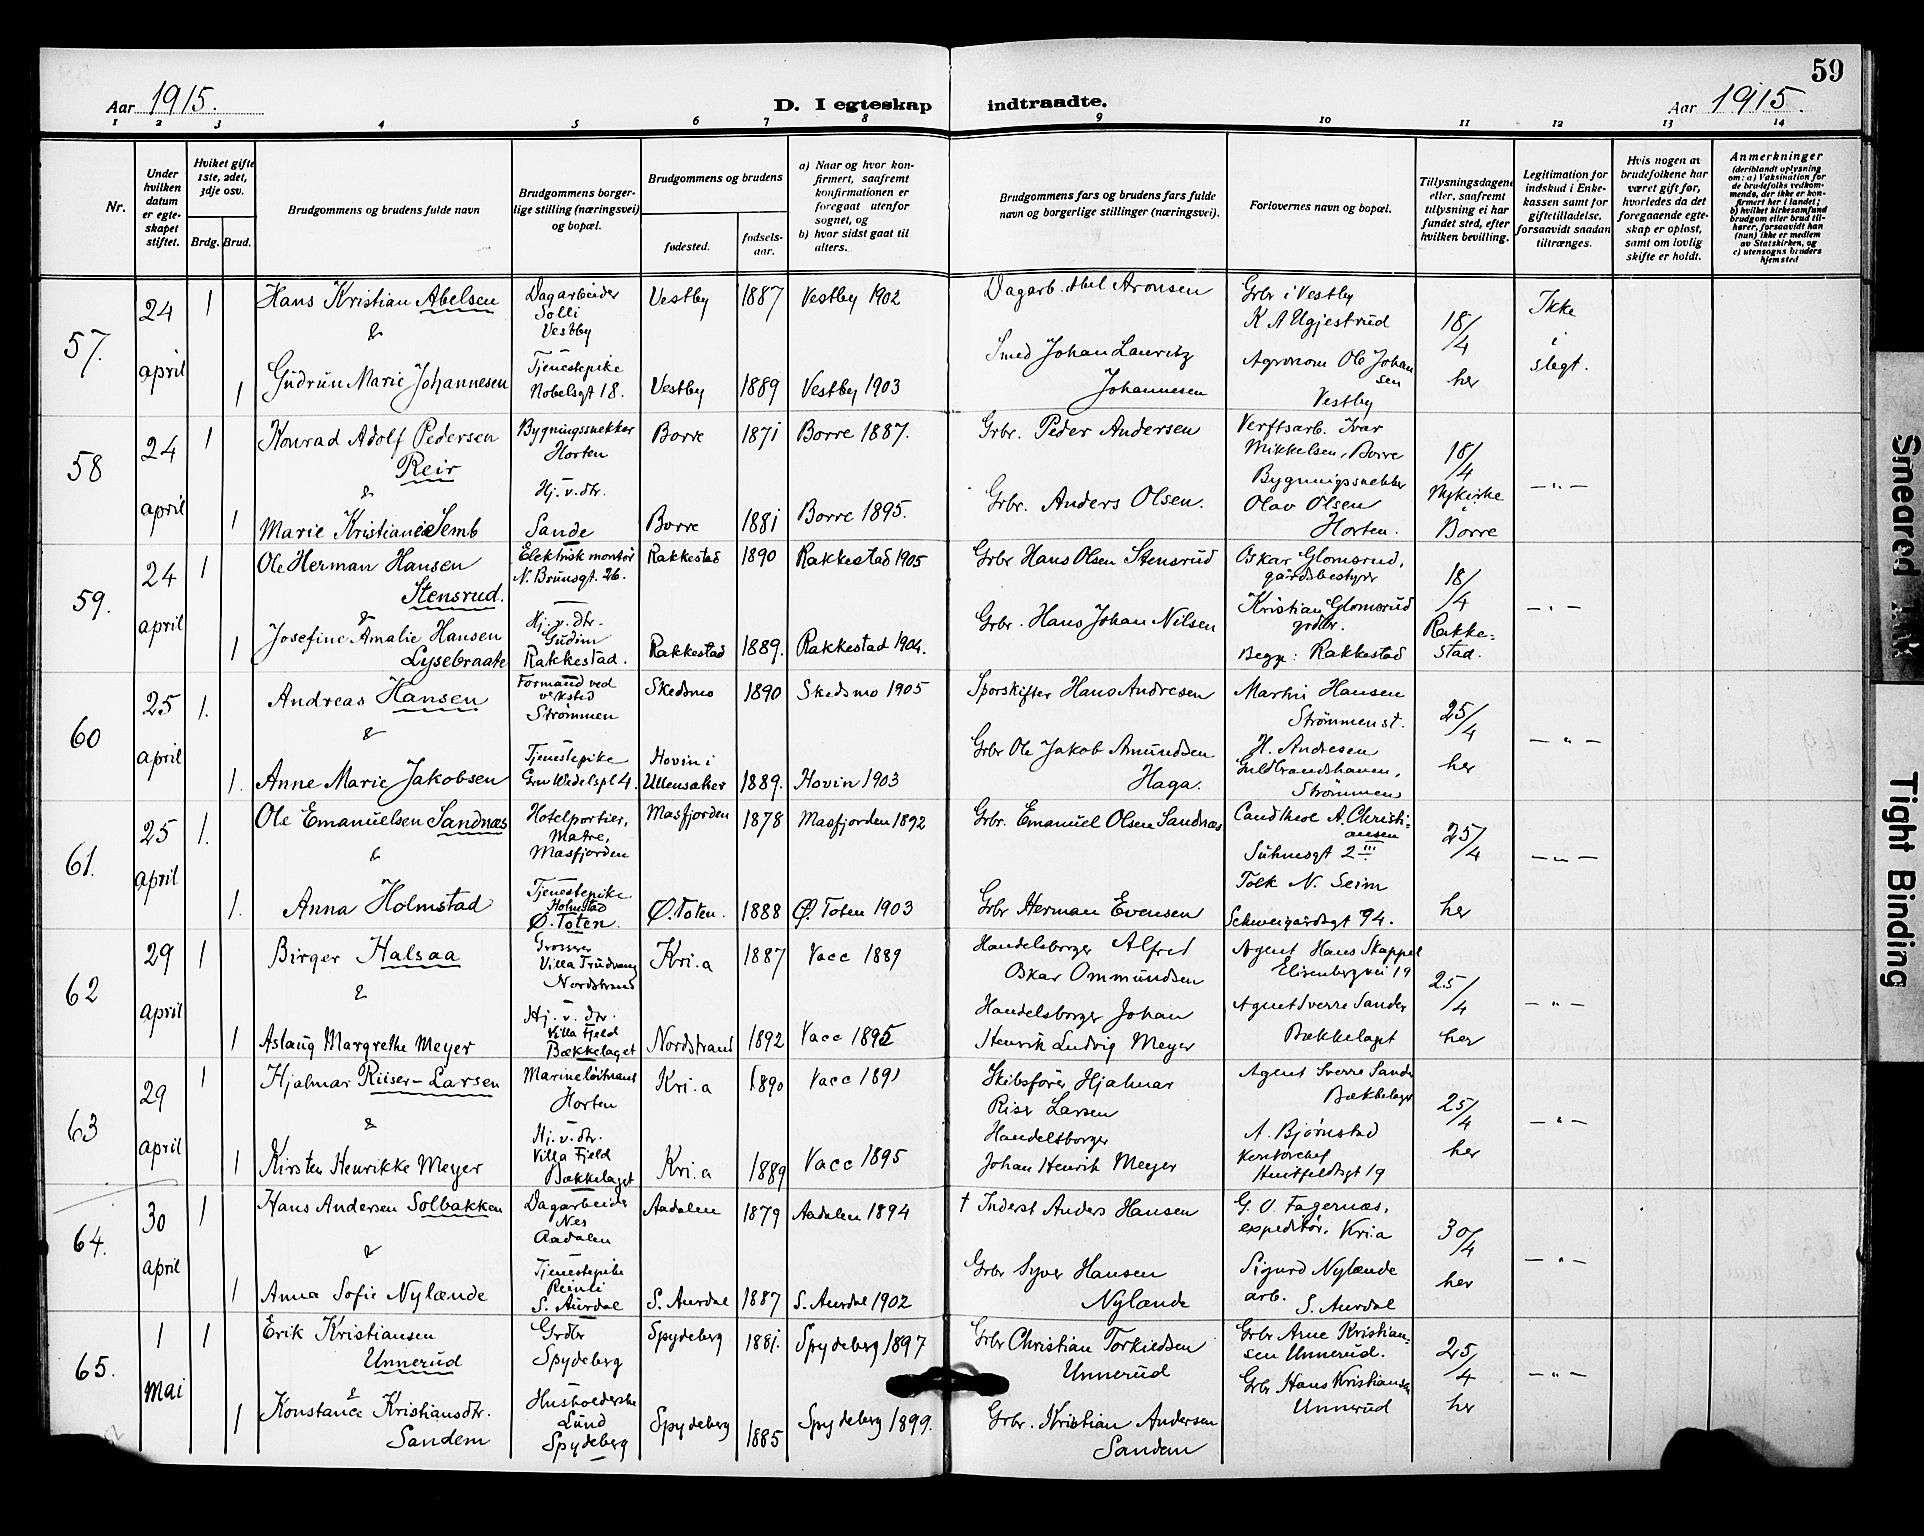 59
Aar 1915.
D. I egteskap indtraadte.
Aar 1915.
1 2 3 4 5 6 7 8 9 10 11 12 13 14
Nr.
Under hvilken datum er egteskapet stiftet.
Hvilket gifte 1ste, 2det, 3dje osv.
Brdg. Brud.
Brudgommens og brudens fulde navn
Brudgommens borgerlige stilling (næringsvei) og bopæl.
Brudgommens og brudens
fødested.
fødselsaar.
a) Naar og hvor konfirmert, saafremt konfirmationen er foregaat utenfor sognet, og
b) hvor sidst gaat til alters.
Brudgommens fars og brudens fars fulde navn og borgerlige stillinger (næringsvei).
Forlovernes navn og bopæl.
Tillysningsdagene eller, saafremt tillysning ei har fundet sted, efter hvilken bevilling.
Legitimation for indskud i Enkekassen samt for giftetilladelse, forsaavidt saadan tiltrænges.
Hvis nogen av brudefolkene har været gift før, hvorledes da det foregaaende egteskap er opløst, samt om lovlig skifte er holdt.
Anmerkninger (deriblandt oplysning om: a) Vaksination for de brudefolks vedkommende, der ikke er konfirmert her i landet; b) hvilket kirkesamfund brudgom eller brud tilhører, forsaavidt han (hun) ikke er medlem av Statskirken, og c) utensogns bruders hjemsted
57. 24 april 1
Hans Kristian Abelsen
Dagarbeider Solli Vestby
Vestby 1887 Vestby 1902
Dagarb. Abel Aronsen
Grbr i Vestby K A Ugjestrud
18/4 her
Ikke i slegt.
&
1 Gudrun Marie Johannesen
Tjenestepike Nobelsgt 18.
Vestby 1889 Vestby 1903
Smed Johan Lauritz Johannesen
Agronom Ole Johansen Vestby
58 24 april 1
Konrad Adolf Pedersen Reir
Bygningssnekker Horten
Borre 1871 Borre 1887.
Grbr. Peder Andersen
Verftsarb. Ivar Mikkelsen, Borre
18/4 Nykirke i Borre
-"-
&
1 Marie Kristiane Semb
Hj. v. dtr. Sande
Borre 1881 Borre 1895.
Grbr. Anders Olsen.
Bygningssnekker Olav Olsen Horten.
59. 24 april 1
Ole Herman Hansen Stensrud.
Elektrisk montør N. Brunsgt. 26.
Rakkestad 1890 Rakkestad 1905
Grbr Hans Olsen Stensrud
Oskar Glomsrud, gårdsbestyrer
18/4 Rakkestad.
-"-
&
1 Josefine Amalie Hansen Lysebraate
Hj. v. dtr. Gudim Rakkestad.
Rakkestad 1889. Rakkestad 1904.
Grbr. Hans Johan Nilsen
Kristian Glomsrud grdbr.
Begge: Rakkestad
60 25 april 1.
Andreas Hansen
Formand ved verksted Strømmen
Skedsmo 1890 Skedsmo 1905
Sporskifter Hans Andresen
Martin Hansen Strømmen st.
25/4 her
-"-
&
1. Anne Marie Jakobsen
Tjenestepike Grev Wedelspl 4.
Hovin i Ullensaker 1889. Hovin 1903
Grbr Ole Jakob Amundsen Haga.
H. Andresen Guldbrandshaven, Strømmen
61. 25 april 1.
Ole Emanuelsen Sandnæs
Hotelportier, Matre, Masfjorden
Masfjorden 1878 Masfjorden 1892
Grbr. Emanuel Olsen Sandnæs
Cand theol A. Christiansen Suhmsgt 2 III
25/4 her
-"-
&
1. Anna Holmstad
Tjenestepike Holmstad Ø. Toten.
Ø. Toten. 1888 Ø. Toten 1903
Grbr Herman Evensen
Tolk N. Seim Schweigaardsgt 94.
62 29 april 1
Birger Halsaa
Grosserer Villa Trudvang Nordstrand
Kri.a 1887 Vacc 1889
Handelsborger Alfred Oskar Ommundsen
Agent Hans Skappel Elisenbergvei 19
25/4 her
-"-
&
1 Aslaug Margrethe Meyer
Hj. v. dtr. Villa Fjeld Bækkelaget
Nordstrand 1892 Vacc 1895
Handelsborger Johan Henrik Ludvig Meyer
Agent Sverre Sander Bækkelaget
63 29 april 1
Hjalmar Riiser-Larsen
Marineløitnant Horten
Kri.a 1890 Vacc 1891
Skibsfører Hjalmar Riser Larsen
Agent Sverre Sander Bækkelaget
25/4 her
-"-
&
1 Kirsten Henrikke Meyer
Hj. v. dtr. Villa Fjeld Bækkelaget
Kri.a 1889 Vacc 1895
Handelsborger Johan Henrik Meyer
A. Bjørnstad Kontorchef Huitfeldtsgt 19
64. 30 april 1
Hans Andersen Solbakken
Dagarbeider Nes Aadalen
Aadalen 1879 Aadalen 1894
† Inderst Anders Hansen
G. O. Fagernæs, expeditør, Kria
30/4 her
-"-
&
1 Anna Sofie Nylænde
Tjenestepike Reinli S. Aurdal
S. Aurdal 1887 S. Aurdal 1902
Grbr Syver Hansen Nylænde
Sigurd Nylænde arb. S. Aurdal
65. 1 mai 1
Erik Kristiansen Unnerud
Grdbr Spydeberg
Spydeberg 1881. Spydeberg 1897
Grbr Christian Torkildsen Unnerud
Grbr Arne Kristiansen Unnerud.
25/4 her
-"-
&
1 Konstance Kristiansdtr. Sandem
Husholderske Lund Spydeberg
Spydeberg 1885 Spydeberg 1899.
Grbr. Kristian Andersen Sandem
Grbr Hans Kristiansen Unnerud
Smeared Ink
Tight Binding